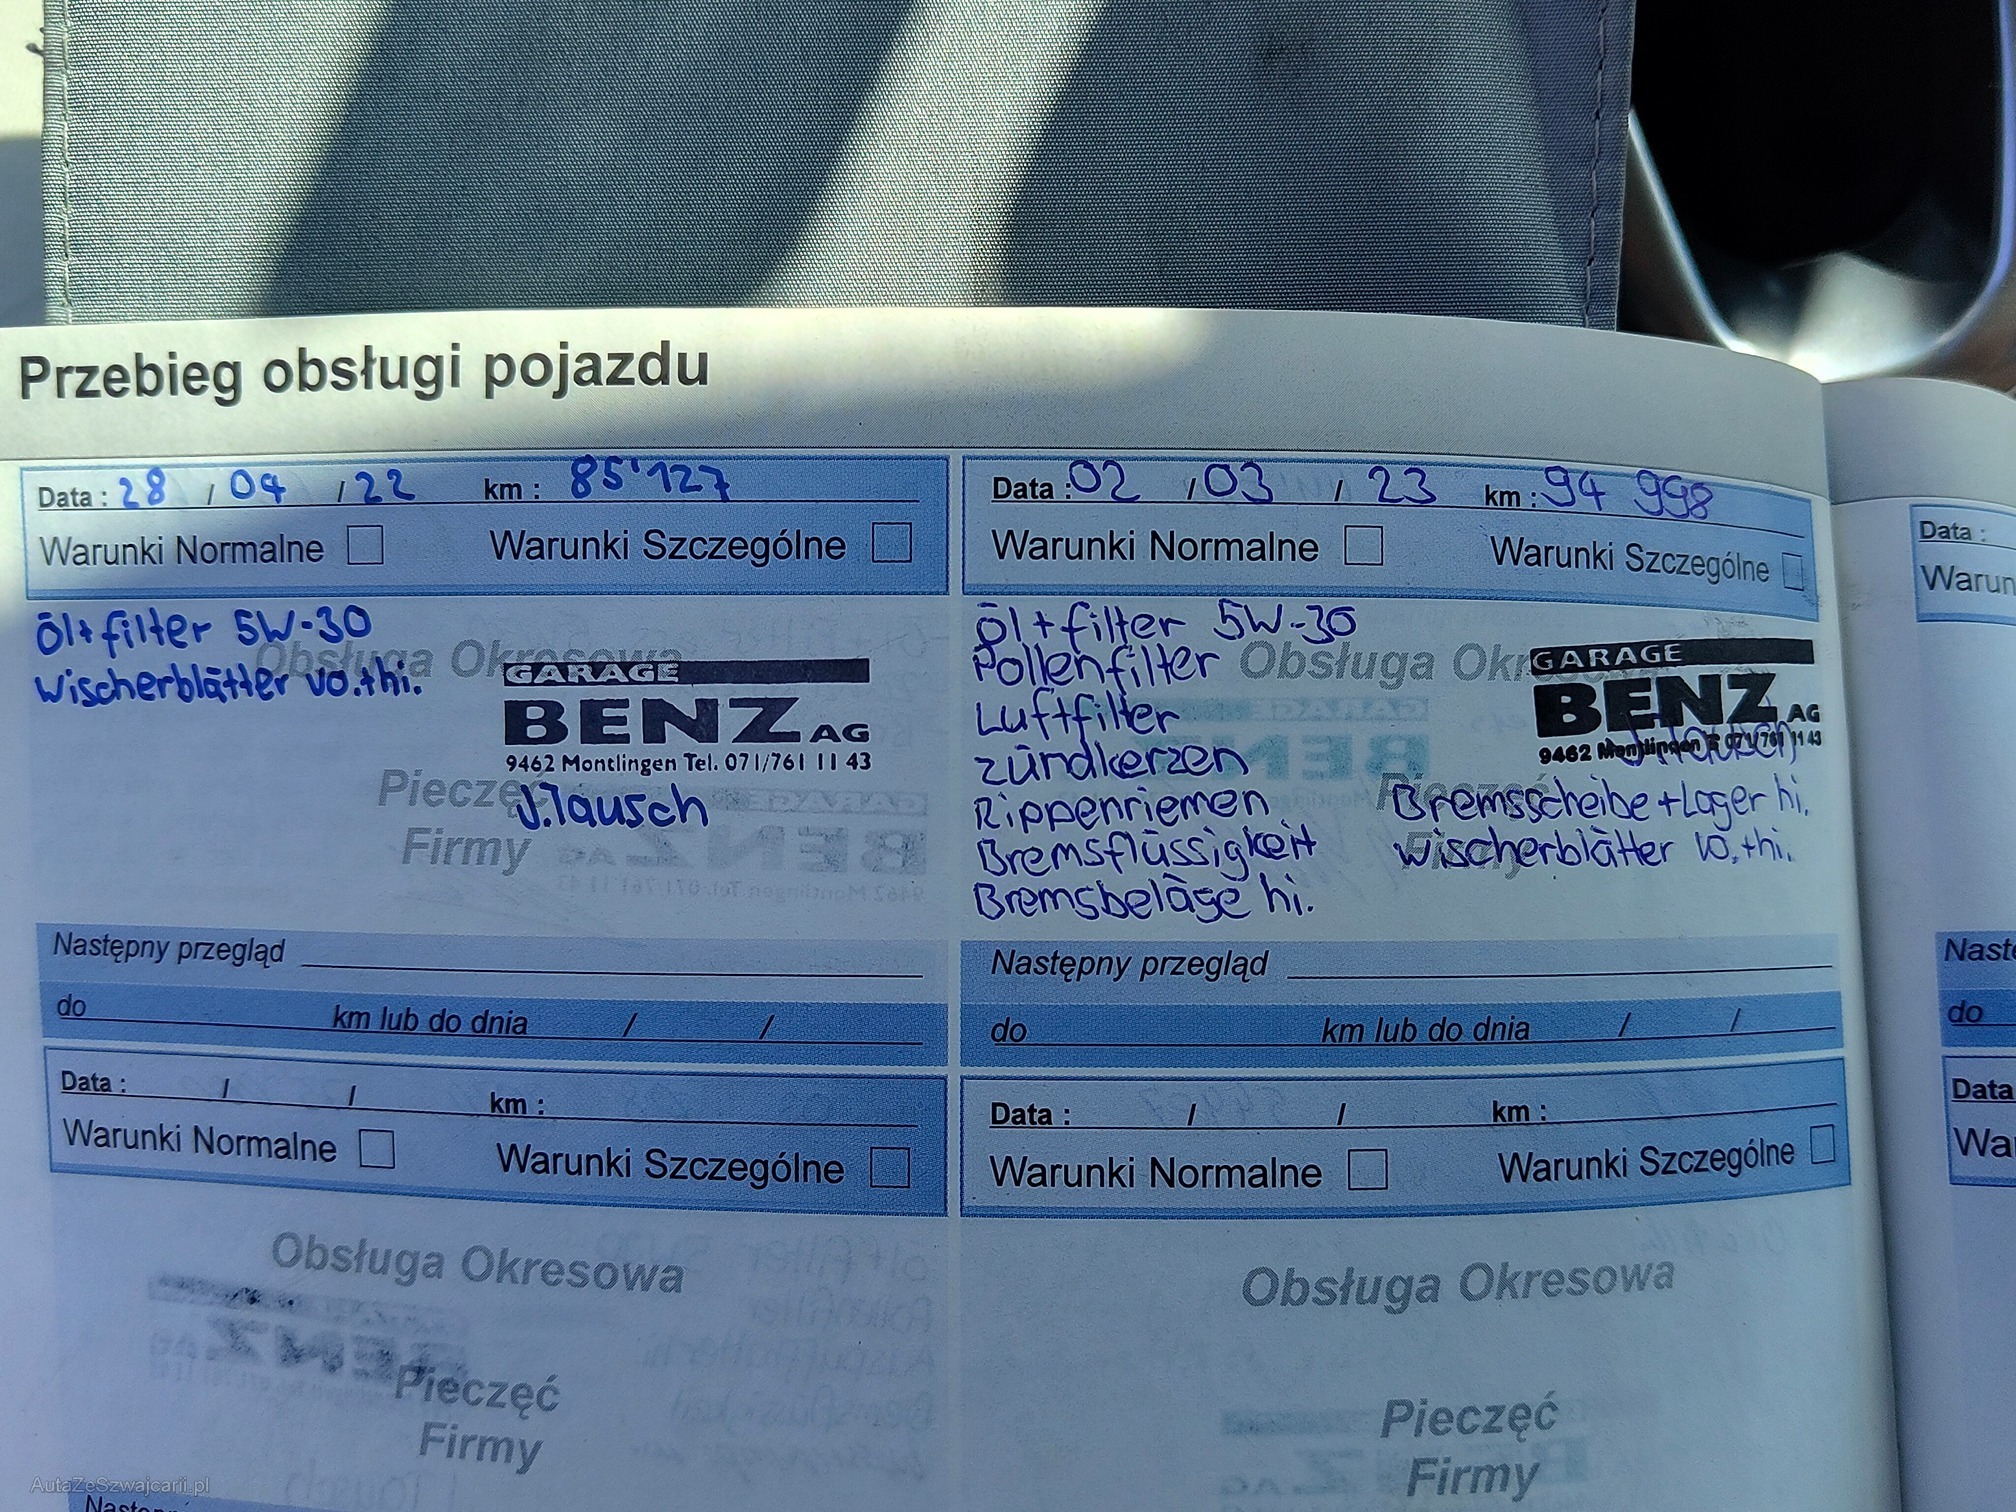 Przebieg obsługi pojazdu
Data : 28 / 04 / 22 km : 85'127
Warunki Normalne Warunki Szczególne
öl+filter 5W-30
Wischerblätter vo.+hi.
Obsługa Okresowa
GARAGE
BENZ AG
9462 Montlingen Tel. 071/761 11 43
J.Tausch
Pieczęć
Firmy
Następny przegląd
do km lub do dnia / /
Data : 02 / 03 / 23 km : 94 998
Warunki Normalne Warunki Szczególne
öl+filter 5W-30
Pollenfilter
Luftfilter
Zündkerzen
Rippenriemen
Bremsflüssigkeit
Bremsbeläge hi.
Obsługa Okresowa
GARAGE
BENZ AG
9462 Montlingen 071/761 11 43
Bremsscheibe+Lager hi.
Wischerblätter vo.+hi.
Następny przegląd
do km lub do dnia / /
Data : / / km :
Warunki Normalne Warunki Szczególne
Obsługa Okresowa
Pieczęć
Firmy
Data : / / km :
Warunki Normalne Warunki Szczególne
Obsługa Okresowa
Pieczęć
Firmy
Data :
do
Data
AutaZeSzwajcarii.pl